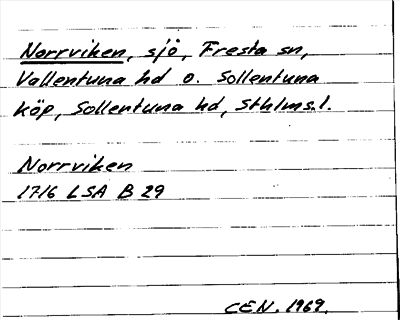 Norrviken, sjö, Fresta sn,
Vallentuna hd o. Sollentuna
köp, Sollentuna hd, Sthlms.l.
Norrviken
1716 LSA B 29
CEN. 1969.